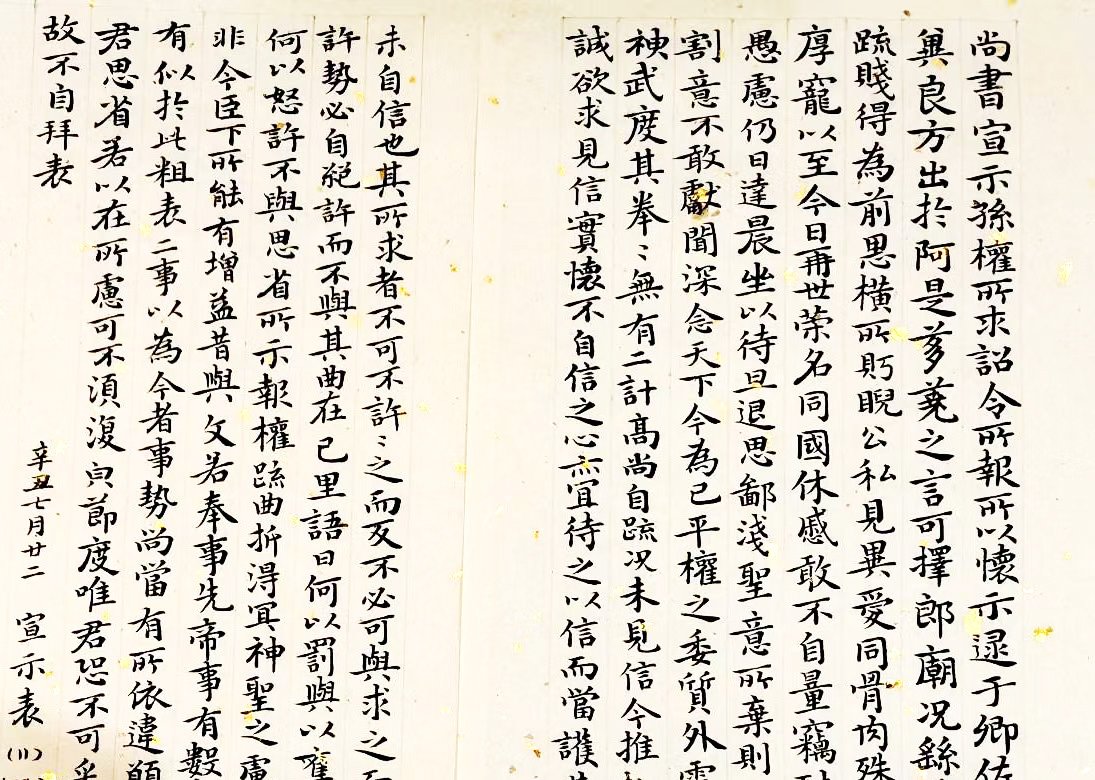 尚書宣示孫權所求詔令所報所以懷示逯于卿佐
冀良方出於阿是芻蕘之言可擇郎廟況繇
疏賤得為前恩橫所眄睨公私見異愛同骨肉殊
厚寵以至今日再世荣名同國休慼敢不自量竊
愚慮仍日達晨坐以待旦退思鄙淺聖意所棄則
割意不敢獻聞深念天下今為已平權之委質外震
神武度其拳〻無有二計高尚自疏况未見信今推
誠欲求見信實懷不自信之心亦宜待之以信而當護
未自信也其所求者不可不許〻之而反不必可與求之而
許勢必自絕許而不與其曲在己里語曰何以罰與以奪
何以怒許不與思省所示報權疏曲折得宜神聖之慮
非今臣下所能有增益昔與文若奉事先帝事有數
有似於此粗表二事以為今者事勢尚當有所依違願
君思省若以在所慮可不須復皃節度唯君恐不可采
故不自拜表
辛丑七月廿二 宣示表 (11)